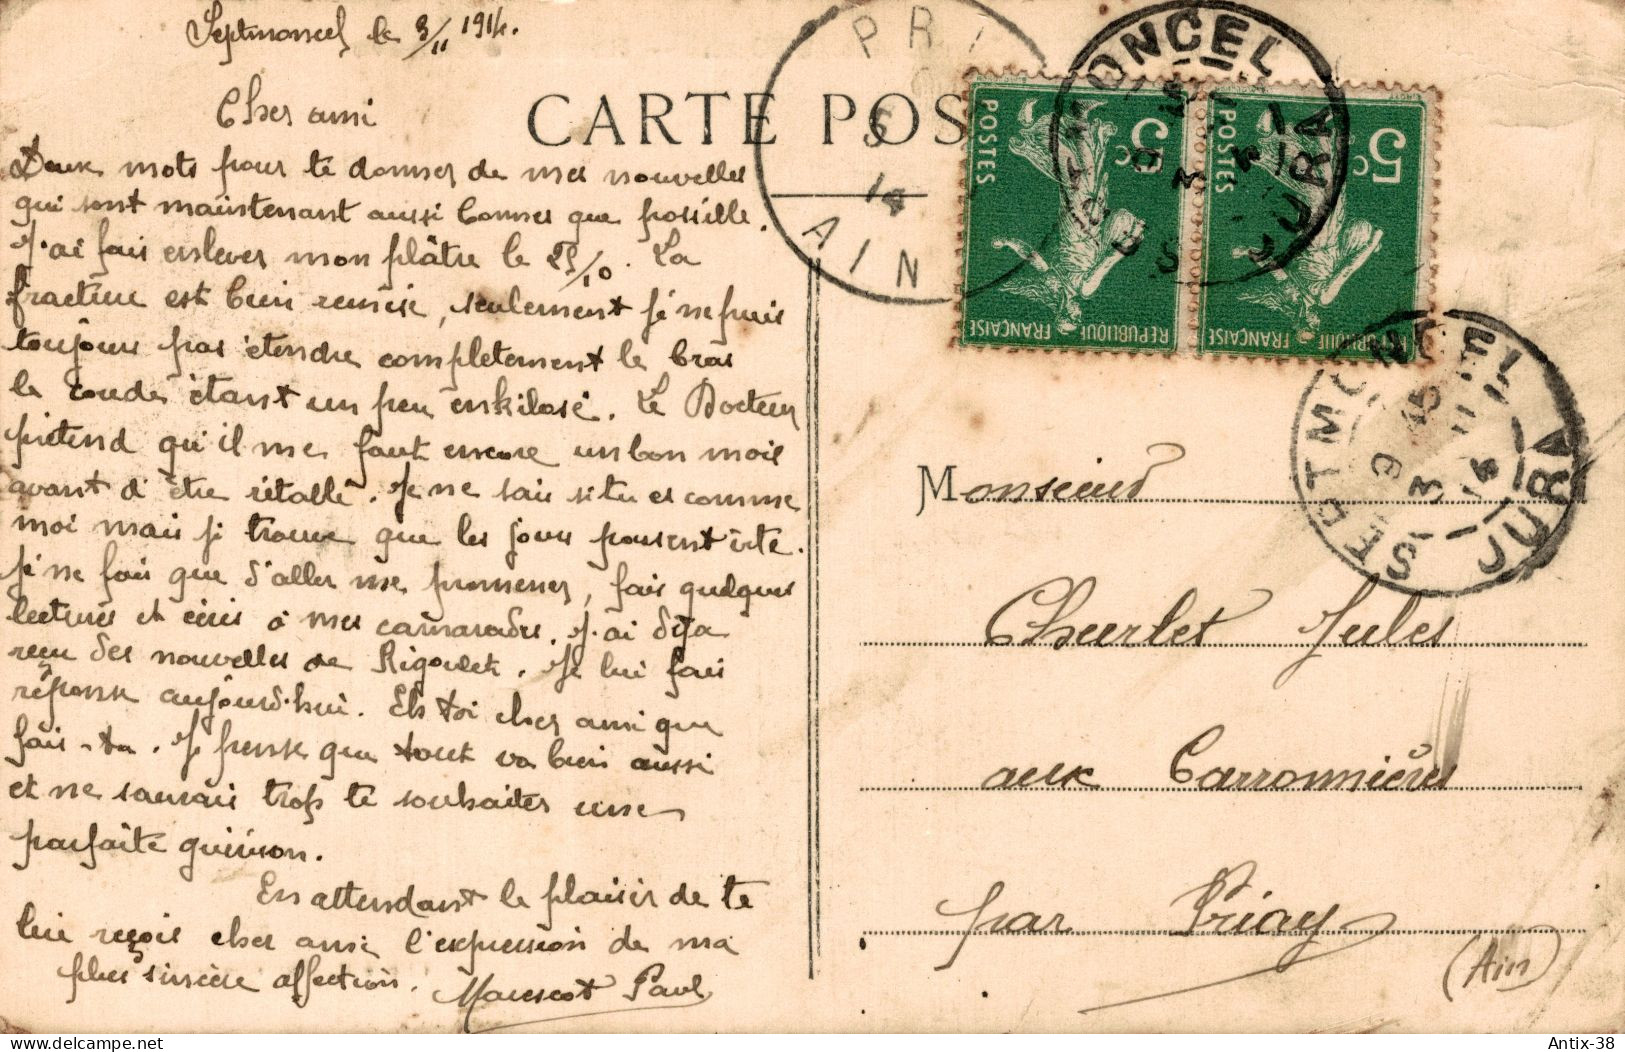 Septmoncel le 3/11 1914.
Cher ami
Deux mots pour te donner de mes nouvelles
qui sont maintenant aussi bonnes que possible.
J'ai fais enlever mon plâtre le 25/10. La
fracture est bien remise, seulement je ne puis
toujours pas étendre completement le bras
le coude étant un peu enkilosé. Le Docteur
prétend qu'il me faut encore un bon mois
avant d'être rétabli. Je ne sais si tu es comme
moi mais je trouve que les jours passent vite.
Je ne fais que d'aller me promener, fais quelques
lectures et écris à mes camarades. J'ai déja
reçu des nouvelles de Rigoulet. Je lui fais
réponse aujourd'hui. Et toi cher ami que
fais-tu. Je pense que tout va bien aussi
et ne saurais trop te souhaiter une
parfaite guérison.
En attendant le plaisir de te
lire reçois cher ami l'expression de ma
plus sincère affection. Paul
CARTE POS
PRI
14
AIN
POSTES
5c
REPUBLIQUE FRANÇAISE
POSTES
5c
REPUBLIQUE FRANÇAISE
MONCEL
JURA
SEPTMONCEL
9 45
3 11
14
JURA
Monsieur
Charlet Jules
aux Carronnières
par Priay
(Ain)
Antix-38